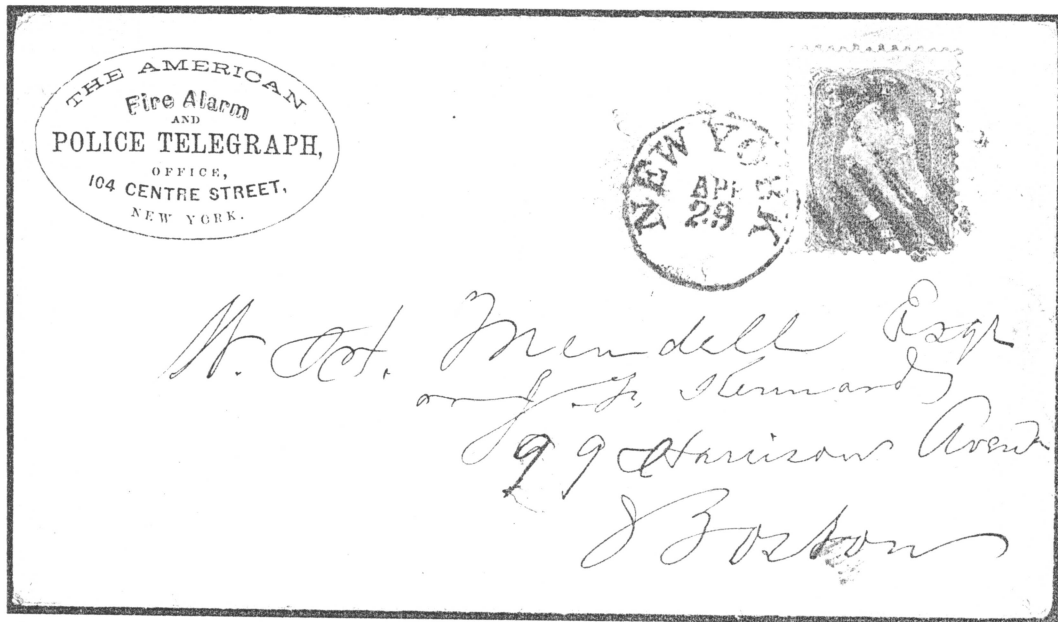 THE AMERICAN
Fire Alarm
AND
POLICE TELEGRAPH,
OFFICE,
104 CENTRE STREET,
NEW YORK.
NEW YORK
APR
29
W. H. Mendell Esqr
or J. F. Kennard
99 Harrison Avenue
Boston